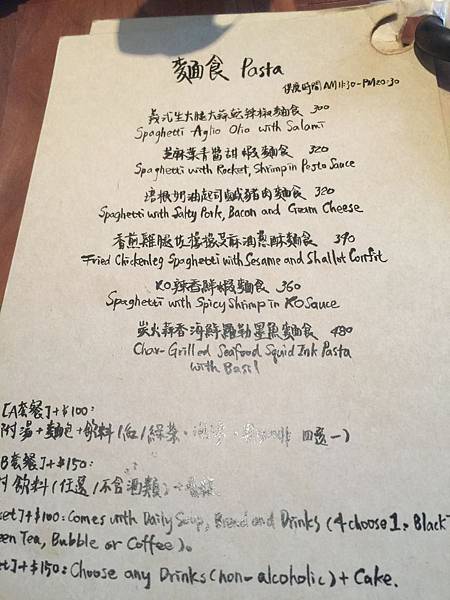 麵食 Pasta
供應時間 AM11:30-PM20:30
義式生火腿大蒜乾辣椒麵食 300
Spaghetti Aglio Olio with Salami
芝麻葉青醬甜蝦麵食 320
Spaghetti with Rocket, Shrimp in Pesto Sauce
培根奶油起司鹹豬肉麵食 320
Spaghetti with Salty Pork, Bacon and Cream Cheese
香煎雞腿佐 麻油蔥酥麵食 390
Fried Chickenleg Spaghetti with Sesame and Shallot Confit
XO辣香鮮蝦麵食 360
Spaghetti with Spicy Shrimp in XO Sauce
炭火蒜香海鮮羅勒墨魚麵食 480
Char-Grilled Seafood Squid Ink Pasta
with Basil
[A套餐]+$100:
附湯+麵包+飲料(紅/綠茶、 四選一)
B套餐]+$150:
飲料(任選/不含酒類)+
et]+$100: Comes with Daily Soup, Bread and Drinks (4 choose 1, Black
een Tea, Bubble or Coffee).
et]+$150: Choose any Drinks (non-alcoholic) + Cake.